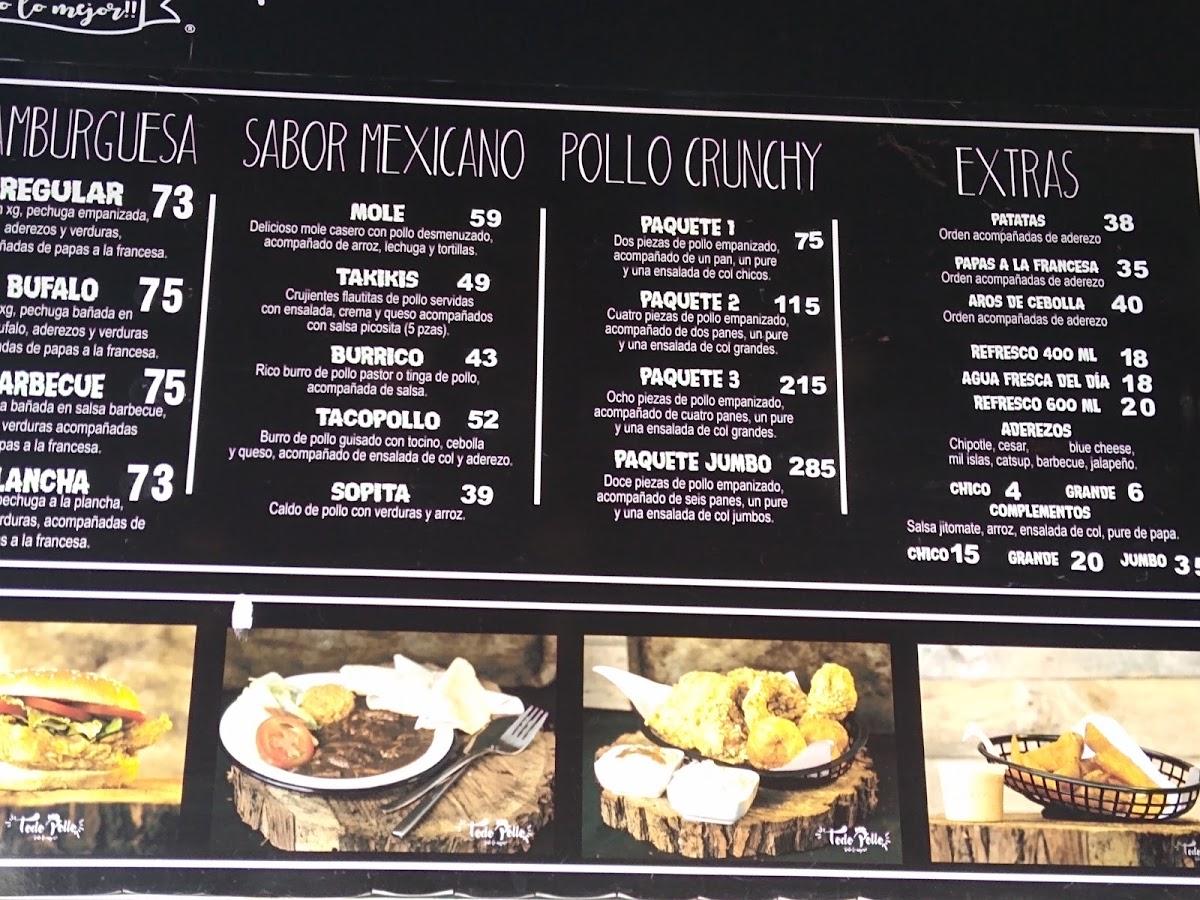 o lo mejor!!
®
AMBURGUESA
REGULAR 73
xg, pechuga empanizada,
aderezos y verduras,
ñadas de papas a la francesa.
BUFALO 75
xg, pechuga bañada en
ufalo, aderezos y verduras
adas de papas a la francesa.
ARBECUE 75
a bañada en salsa barbecue,
verduras acompañadas
pas a la francesa.
LANCHA 73
pechuga a la plancha,
rduras, acompañadas de
s a la francesa.
SABOR MEXICANO
MOLE 59
Delicioso mole casero con pollo desmenuzado,
acompañado de arroz, lechuga y tortillas.
TAKIKIS 49
Crujientes flautitas de pollo servidas
con ensalada, crema y queso acompañados
con salsa picosita (5 pzas).
BURRICO 43
Rico burro de pollo pastor o tinga de pollo,
acompañada de salsa.
TACOPOLLO 52
Burro de pollo guisado con tocino, cebolla
y queso, acompañado de ensalada de col y aderezo.
SOPITA 39
Caldo de pollo con verduras y arroz.
POLLO CRUNCHY
PAQUETE 1 75
Dos piezas de pollo empanizado,
acompañado de un pan, un pure
y una ensalada de col chicos.
PAQUETE 2 115
Cuatro piezas de pollo empanizado,
acompañado de dos panes, un pure
y una ensalada de col grandes.
PAQUETE 3 215
Ocho piezas de pollo empanizado,
acompañado de cuatro panes, un pure
y una ensalada de col grandes.
PAQUETE JUMBO 285
Doce piezas de pollo empanizado,
acompañado de seis panes, un pure
y una ensalada de col jumbos.
EXTRAS
PATATAS 38
Orden acompañadas de aderezo
PAPAS A LA FRANCESA 35
Orden acompañadas de aderezo
AROS DE CEBOLLA 40
Orden acompañadas de aderezo
REFRESCO 400 ML 18
AGUA FRESCA DEL DÍA 18
REFRESCO 600 ML 20
ADEREZOS
Chipotle, cesar, blue cheese,
mil islas, catsup, barbecue, jalapeño.
CHICO 4 GRANDE 6
COMPLEMENTOS
Salsa jitomate, arroz, ensalada de col, pure de papa.
CHICO 15 GRANDE 20 JUMBO 35
Todo Pollo
Todo Pollo
Todo Pollo
Todo